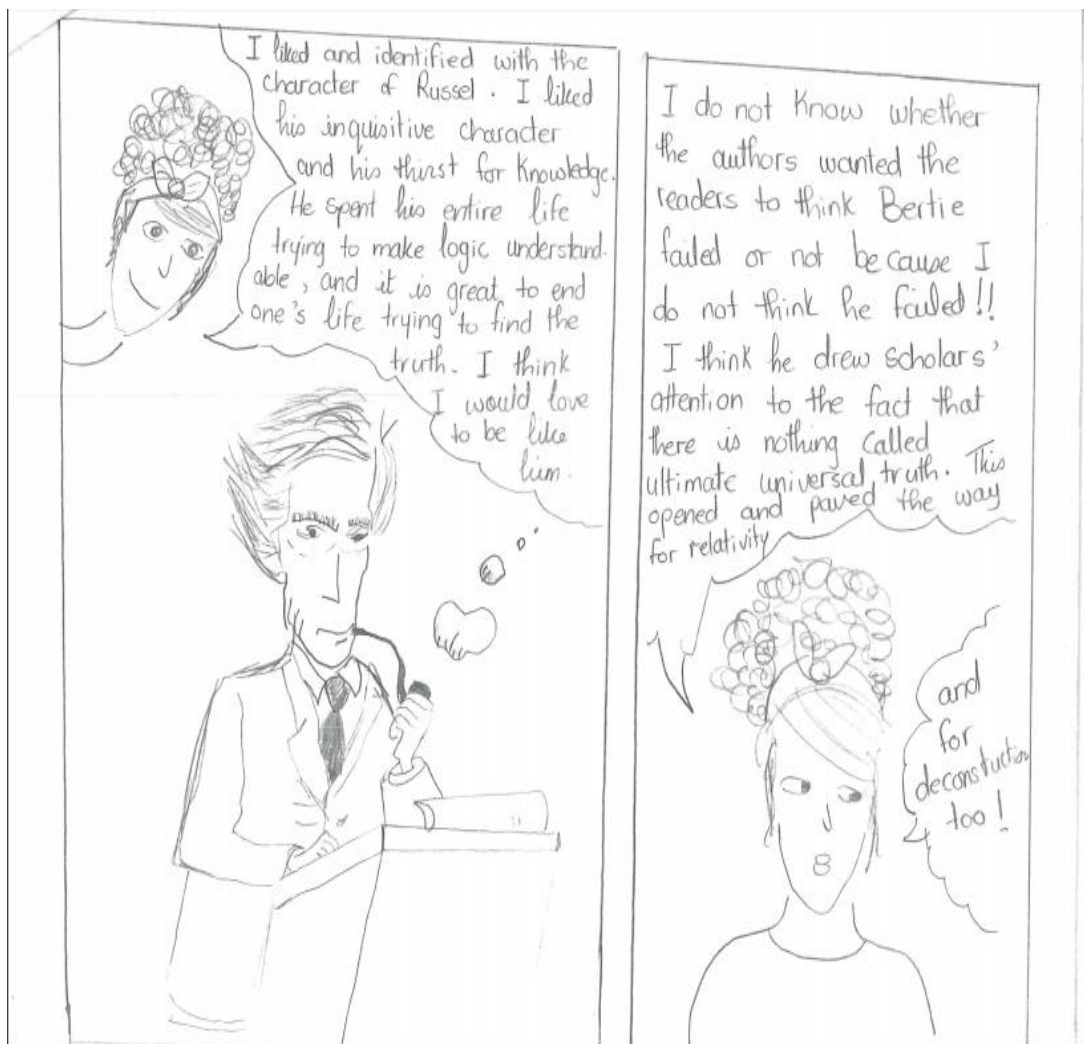 I liked and identified with the
character of Russel. I liked
his inquisitive character
and his thirst for Knowledge.
He spent his entire life
trying to make logic understand-
able, and it is great to end
one's life trying to find the
truth. I think
I would love
to be like
him.
I do not know whether
the authors wanted the
readers to think Bertie
failed or not because I
do not think he failed!!
I think he drew scholars'
attention to the fact that
there is nothing called
ultimate universal truth. This
opened and paved the way
for relativity
and
for
deconstuction
too!